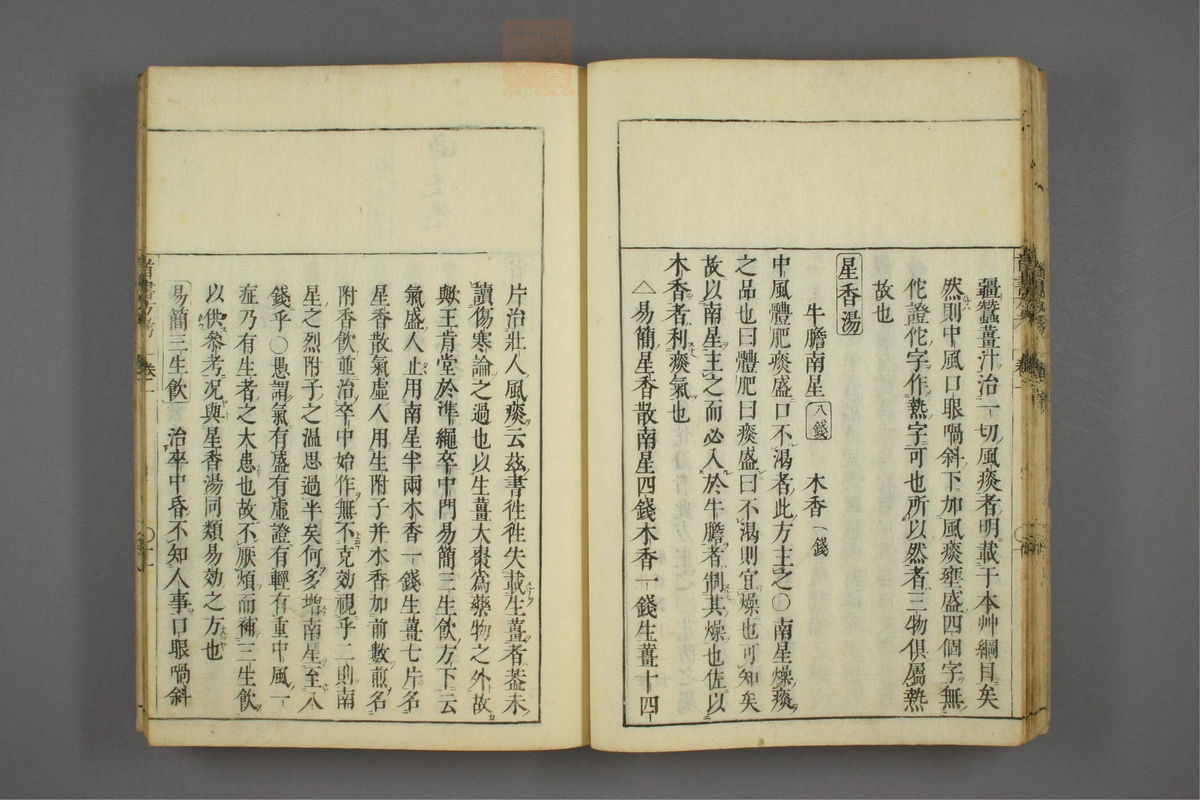 疆蠶薑汁治一切風痰者明載于本艸綱目矣
然則中風口眼喎斜下加風痰壅盛四個字無
佗證佗字作熱字可也所以然者三物俱屬熱
故也
星香湯
牛膽南星 八錢 木香 一錢
中風體肥痰盛口不渴者此方主之〇南星燥痰
之品也曰體肥曰痰盛曰不渴則宜燥也可知矣
故以南星主之而必入於牛膽者制其燥也佐以
木香者利痰氣也
△易簡星香散南星四錢木香一錢生薑十四
片治壯人風痰云茲書徃徃失載生薑者葢未
讀傷寒論之過也以生薑大棗爲藥物之外故
歟王肯堂於準繩卒中門易簡三生飮方下云
氣盛人止用南星半兩木香一錢生薑七片名
星香散氣虛人用生附子并木香加前數煎名
附香飮並治卒中始作無不克効視乎二則南
星之烈附子之温思過半矣何多增南星至八
錢乎〇愚謂氣有盛有虛證有輕有重中風一
症乃有生者之大患也故不厭煩而補三生飮
以供參考況與星香湯同類易効之方也
易簡三生飮 治卒中昏不知人事口眼喎斜
卷一